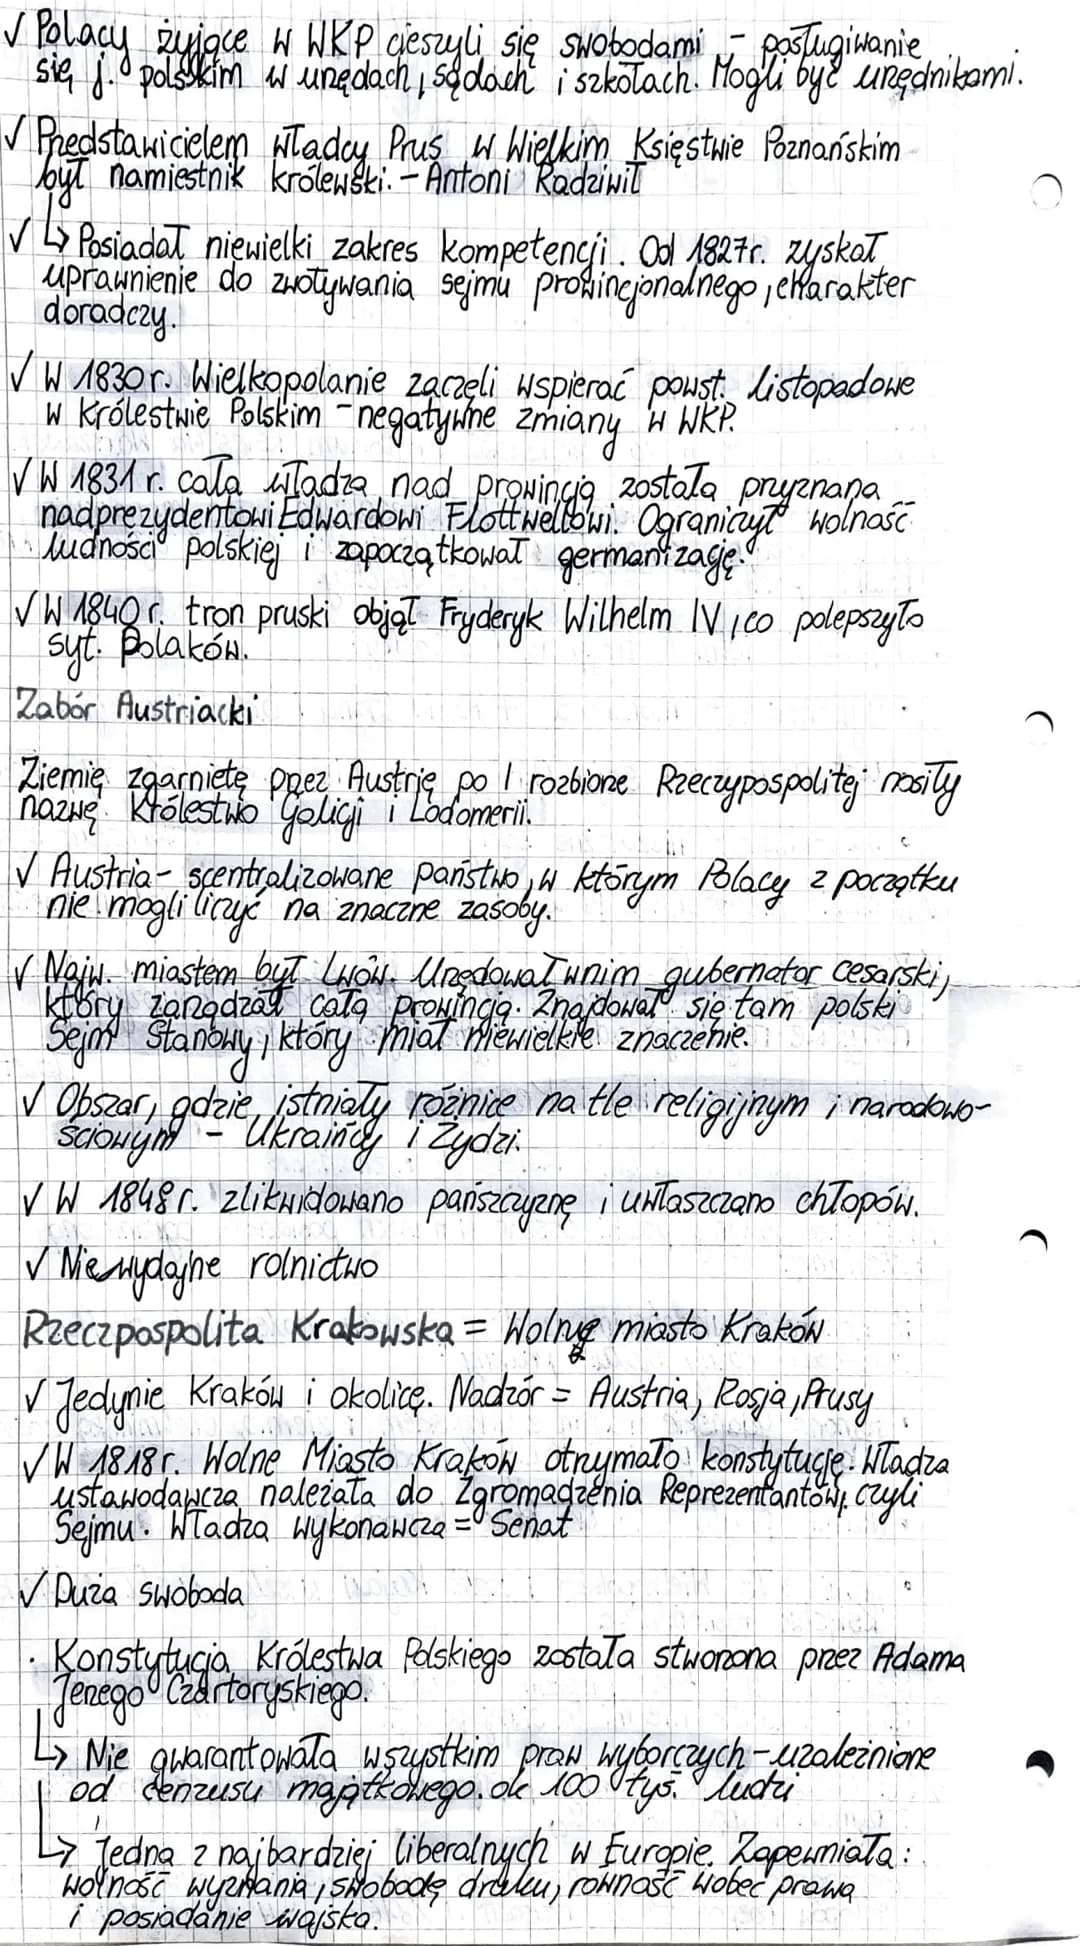 √ Polacy żyjące w WKP cieszyli się swobodami - posługiwanie
się j. polskim w urzędach, sądach i szkołach. Mogli być urzędnikami.
√ Przedstawicielem władcy Prus w Wielkim Księstwie Poznańskim
był namiestnik królewski. - Antoni Radziwił
√ ↳ Posiadał niewielki zakres kompetencji. Od 1827r. zyskał
uprawnienie do zwoływania sejmu prowincjonalnego, charakter
doradczy.
√ W 1830r. Wielkopolanie zaczęli wspierać powst. listopadowe
w Królestwie Polskim - negatywne zmiany w WKP.
√ W 1831 r. cała władza nad prowincją została przyznana
nadprezydentowi Edwardowi Flottwellowi. Ograniczył wolność
ludności polskiej i zapoczątkował germanizację.
√ W 1840r. tron pruski objął Fryderyk Wilhelm IV, co polepszyło
syt. Polaków.
Zabór Austriacki
Ziemię zgarniętę przez Austrię po I rozbiorze Rzeczypospolitej nosiły
nazwę Królestwo Galicji i Lodomerii.
√ Austria - scentralizowane państwo, w którym Polacy z początku
nie mogli liczyć na znaczne zasoby.
√ Najw. miastem był Lwów. Urzędował w nim gubernator cesarski,
który zarządzał całą prowincją. Znajdował się tam polski
Sejm Stanowy, który miał niewielkie znaczenie.
√ Obszar, gdzie istniały różnice na tle religijnym i narodowo-
ściowym - Ukraińcy i Żydzi.
√ W 1848r. zlikwidowano pańszczyznę i uwłaszczano chłopów.
√ Niewydajne rolnictwo
Rzeczpospolita Krakowska = Wolne miasto Kraków
√ Jedynie Kraków i okolicę. Nadzór = Austria, Rosja, Prusy
√ W 1818r. Wolne Miasto Kraków otrzymało konstytucję. Władza
ustawodawcza należała do Zgromadzenia Reprezentantów, czyli
Sejmu. Władza wykonawcza = Senat
√ Duża swoboda
· Konstytucja Królestwa Polskiego została stworzona przez Adama
Jerzego Czartoryskiego.
↳ Nie gwarantowała wszystkim praw wyborczych - uzależnione
od cenzusu majątkowego. ok 100 tyś. ludzi
↳ Jedna z najbardziej liberalnych w Europie. Zapewniała:
wolność wyznania, swobodę druku, równość wobec prawa
i posiadanie wojska.